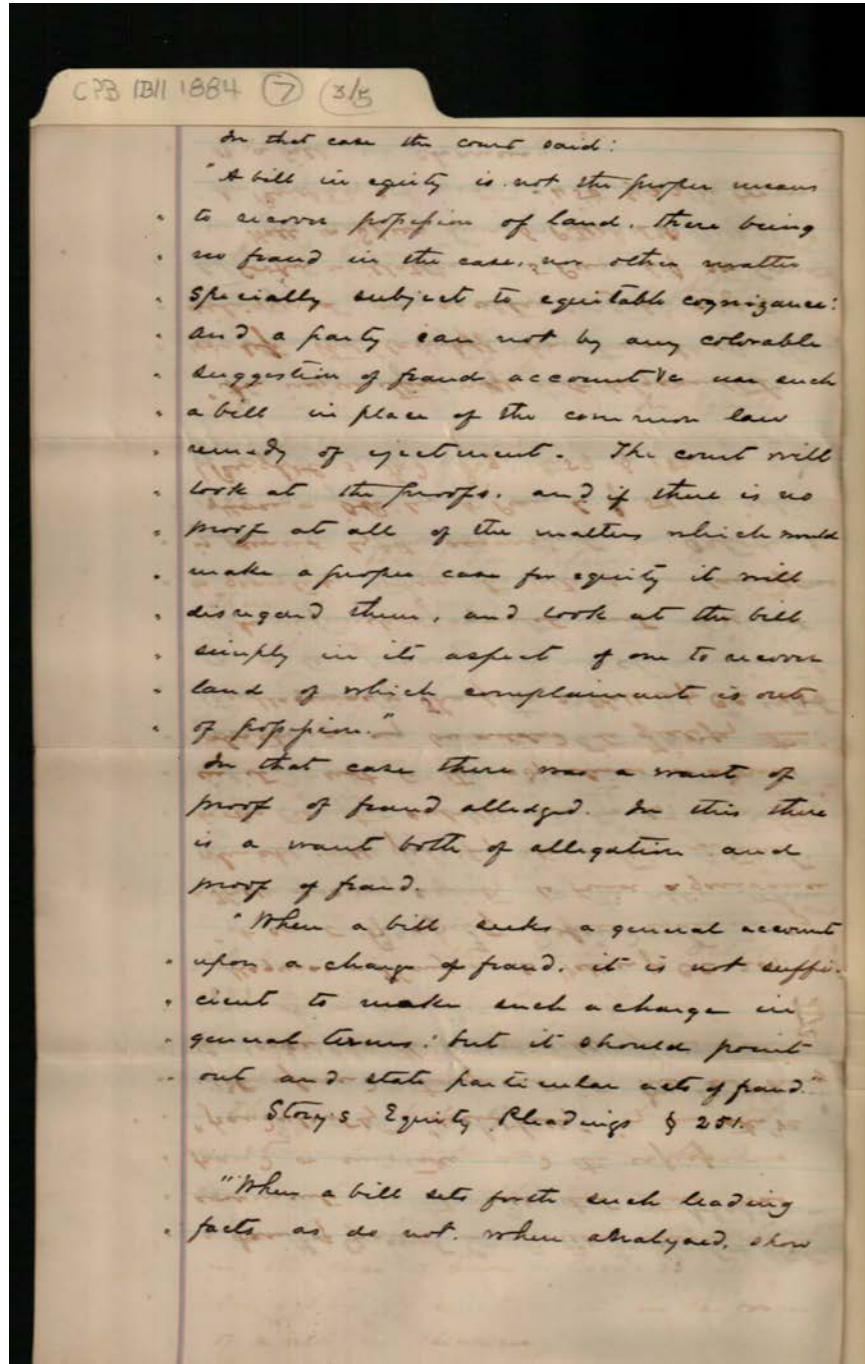 CPB (B)1 1884 (7) (3/5)
In that case the court said:
"A bill in equity is not the proper means
" to recover possession of land, there being
" no fraud in the case, nor other matter
" specially subject to equitable cognizance:
" and a party can not by any colorable
" suggestion of fraud account &c use such
" a bill in place of the common law
" remedy of ejectment. The court will
" look at the proofs, and if there is no
" proof at all of the matters which would
" make a proper case for equity it will
" disregard them, and look at the bill
" simply in its aspect of one to recover
" land of which complainant is out
" of possession."
In that case there was a want of
proof of fraud alledged. In this there
is a want both of allegation and
proof of fraud.
"When a bill seeks a general account
" upon a charge of fraud, it is not suffi-
" cient to make such a charge in
" general terms: but it should point
" out and state particular acts of fraud."
Story's Equity Pleadings § 251.
"When a bill sets forth such leading
" facts as do not, when analyzed, show